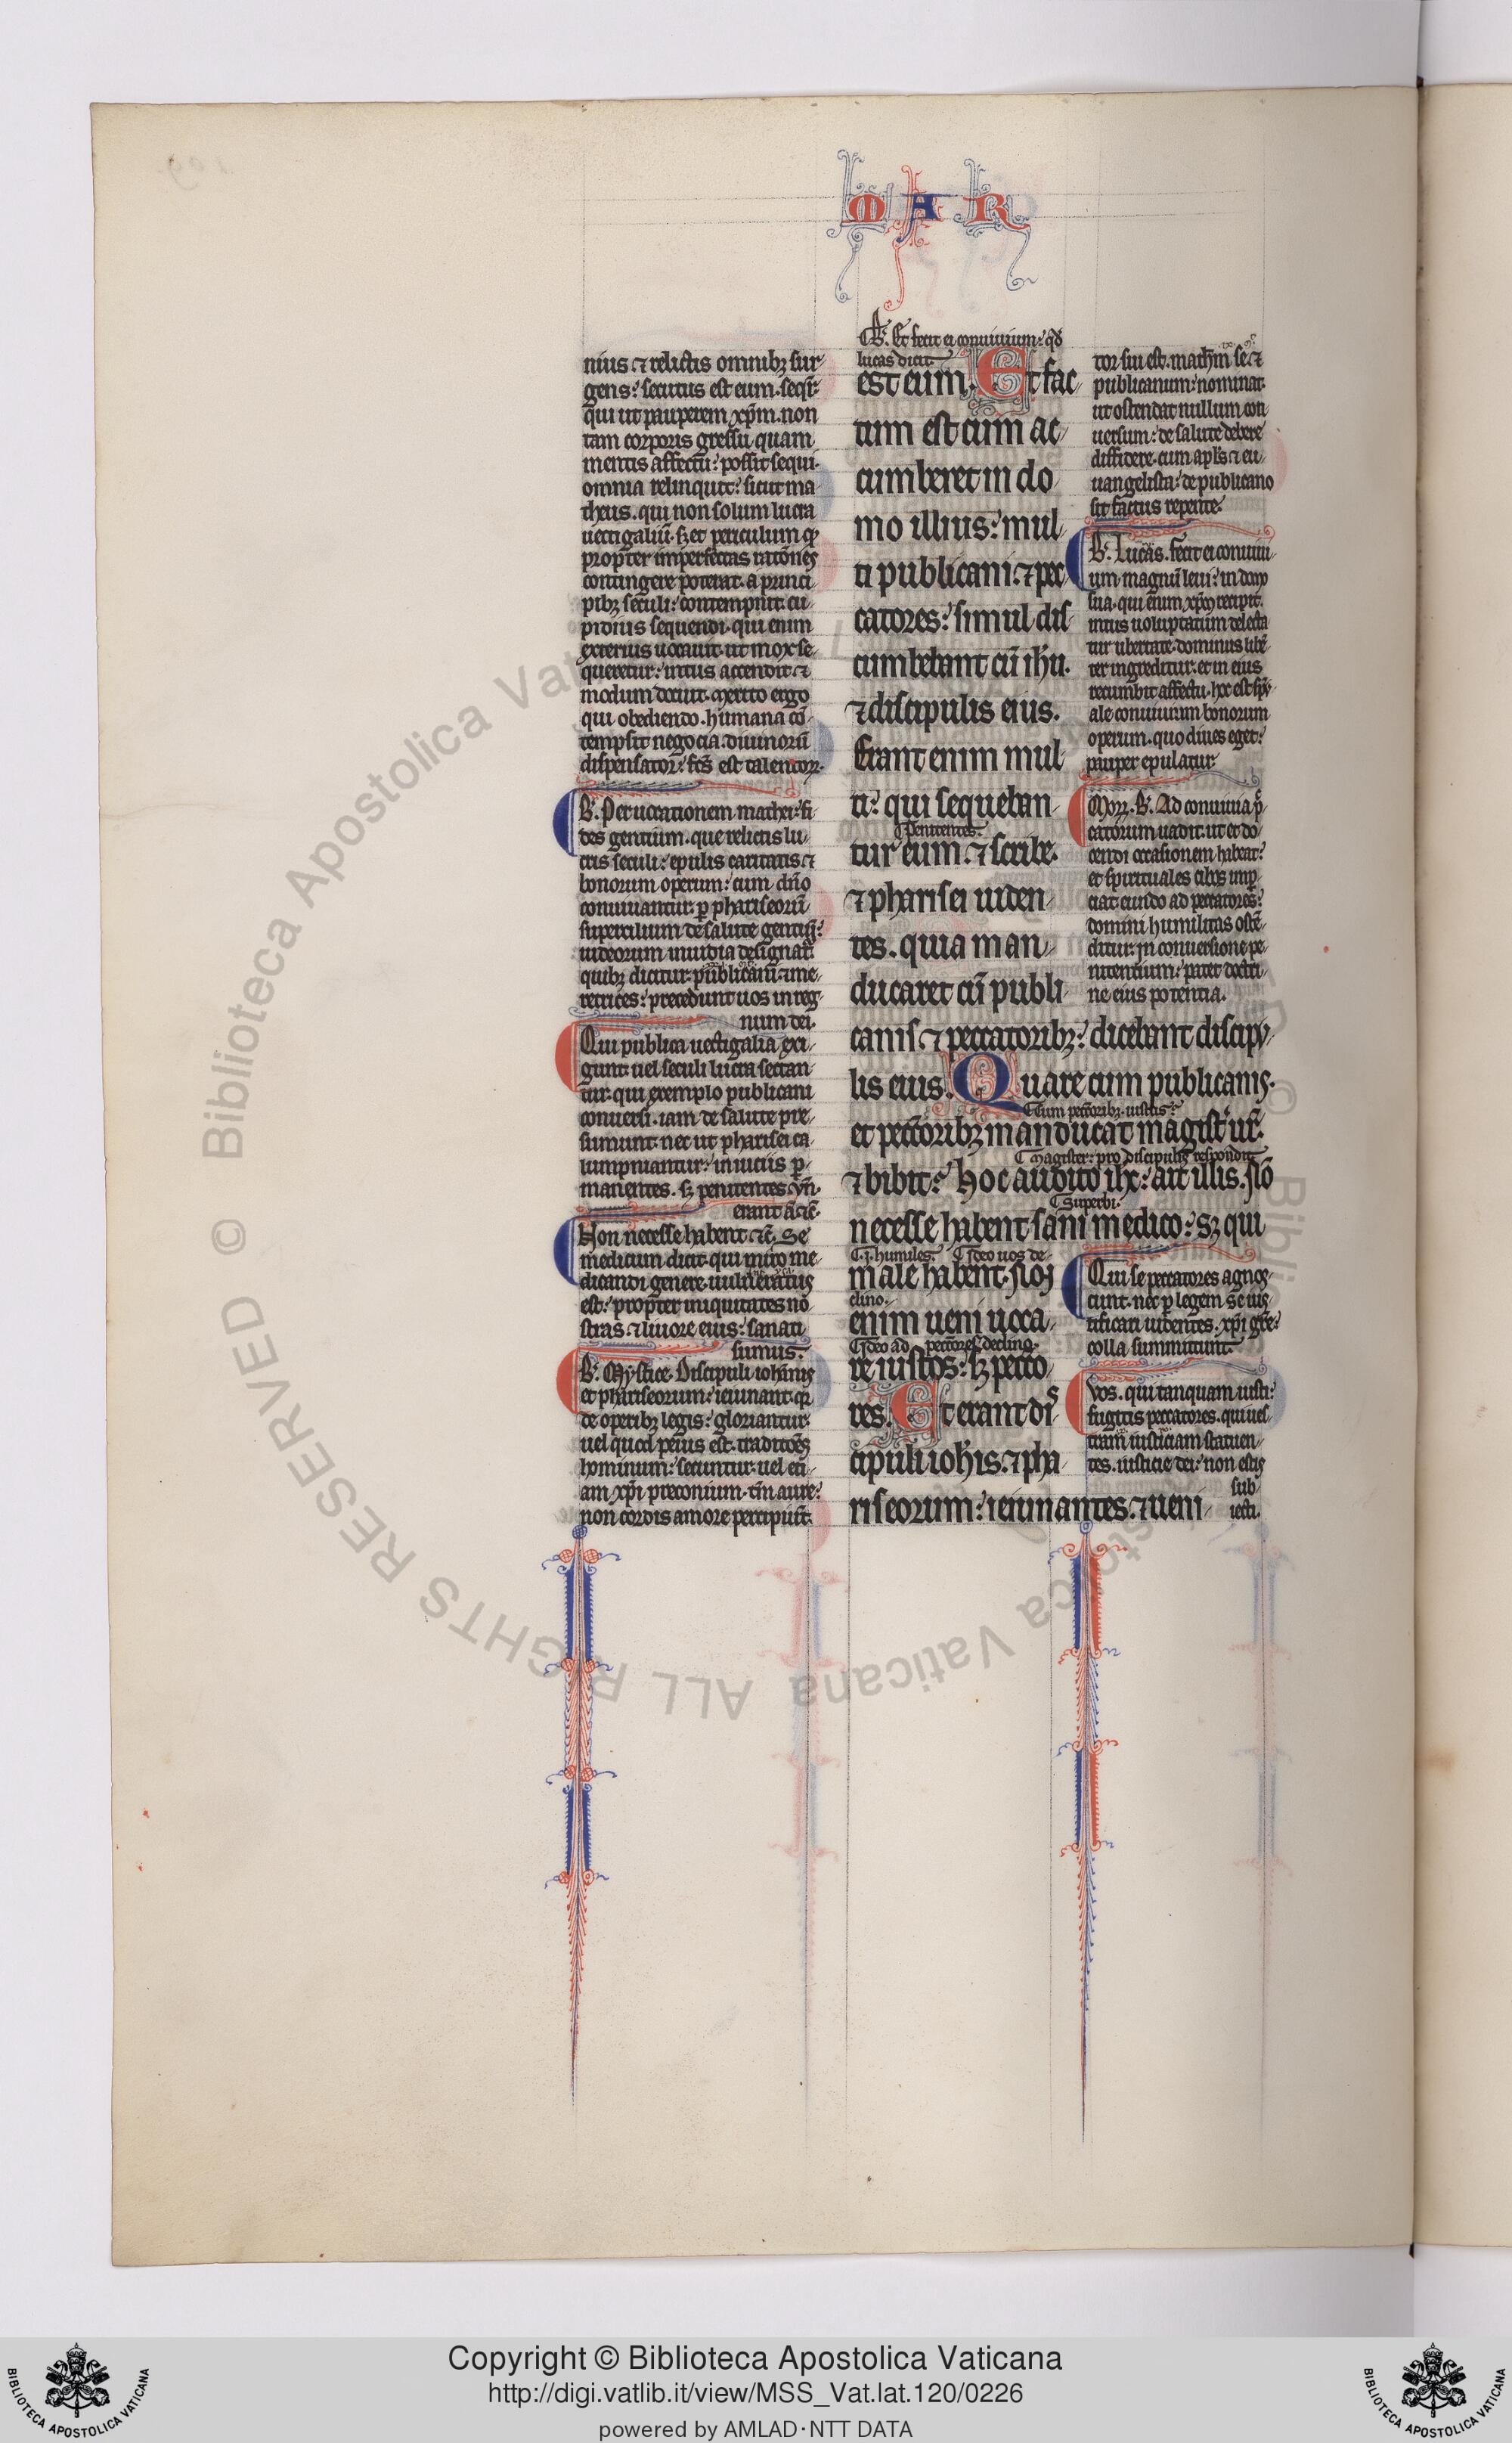 M A R
nius. ⁊ relictis omnibꝫ sur
gens: secutus est eum. seqͥt̄
qui ut pauperem xp̄m. non
tam corporis gressu quam
mentis affectu: possit sequi.
omnia relinquit: sicut ma
theus. qui non solum lucra
uectigaliū. sꝫ et periculum qͩ
propter imperfectas ratōnes
contingere poterat. a princi
pibꝫ seculi: contempnit. cu
pidius sequendi. qui enim
exterius uocauit. ut mox se
queretur: intus accendit. ⁊
modum docuit. Merito ergo
qui obediendo. humana cō
tempsit negocia. diuinorū
dispensator: fc̄s est talentoꝝ.
B. Per uocationem mathei: fi
des gentium. que relictis lu
cris seculi: epulis caritatis. ⁊
bonorum operum: cum dn̄o
conuiuantur. ꝑ phariseorū
supercilium de salute gentiū:
iudeorum inuidia designat̄.
quibꝫ dicitur. publicani. ⁊ me
retrices: precedunt uos in reg
num dei.
Qui publica uectigalia exi
gunt. uel seculi lucra sectan
tur. qui exemplo publicani
conuersi. iam de salute pre
sumunt. nec ut pharisei ca
lumpniantur: in uiciis ꝑ
manentes. sꝫ penitentes. Vn̄.
erant ⁊c̄.
Non necesse habent ⁊c̄. Se
medicum dicit. qui miro me
dicandi genere. uulneratus
est: propter iniquitates no
stras. ⁊ liuore eius: sanati
sumus.
B. Mystice. Discipuli iohannis
et phariseorum: ieiunant. qͥ
de operibꝫ legis: gloriantur.
uel quod peius est. traditōes
hominum: secuntur. uel eti
am xp̄i preconium. tm̄ aure:
non cordis amore percipiūt.
B. Et fecit ei conuiuium: qd̄
lucas dicit.
est eum. Et fac
tum est cum ac
cumberet in do
mo illius: mul
ti publicani. ⁊ pec
catores: simul dis
cumbebant cū ihu.
⁊ discipulis eius.
Erant enim mul
ti: qui sequeban
Penitentes.
tur eum. ⁊ scribe.
⁊ pharisei uiden
tes. quia man
ducaret cū publi
canis ⁊ peccatoribꝫ: dicebant discipu
lis eius. Quare cum publicanis.
Cum peccatoribꝫ. iustus:
et peccoribꝫ manducat magist̄ ur̄.
Magister: pro discipulis respondit.
⁊ bibit: Hoc audito ihc: ait illis. Nō
Superbi.
necesse habent sani medico: sꝫ qui
.i. humiles. Ideo uos de
male habent. Non
clino.
enim ueni uoca
Ideo ad peccores declino.
re iustos: sꝫ pecco
res. Et erant di
cipuli ioh̄is. ⁊ pha
riseorum: ieiunantes. ⁊ ueni
tor sui est. math̄m se. ⁊
publicanum: nominat.
ut ostendat nullum con
uersum: de salute debere
diffidere. cum apl̄s ⁊ eu
uangelista: de publicano
sit factus repente.
B. Lucas. Fecit ei conuiui
um magnū leui: in domo
sua. qui enim xp̄m recipit.
intus uoluptatum delecta
tur ubertate. dominus libē
ter ingreditur. et in eius
recumbit affectu. hoc est sp̄u
ale conuiuium bonorum
operum. quo diues eget:
pauper epulatur.
Moꝝ. B. Ad conuiuia p̄
catorum uadit. ut et do
cendi occasionem habeat:
et spirituales cibos imꝑ
ciat. eundo ad peccatores:
domini humilitas ostē
ditur. In conuersione pe
nitentium: patet doctri
ne eius potentia.
Qui se peccatores agnos
cunt. nec ꝑ legem se ius
tificari uidentes. xp̄i gr̄e:
colla summittunt.
Vos. qui tanquam iusti:
fugitis peccatores. qui ues
tram iusticiam statuen
tes. iusticie dei: non estis
sub
iecti.
Copyright © Biblioteca Apostolica Vaticana
http://digi.vatlib.it/view/MSS_Vat.lat.120/0226
powered by AMLAD·NTT DATA
BIBLIOTECA APOSTOLICA VATICANA
BIBLIOTECA APOSTOLICA VATICANA
© Biblioteca Apostolica Vaticana ALL RIGHTS RESERVED